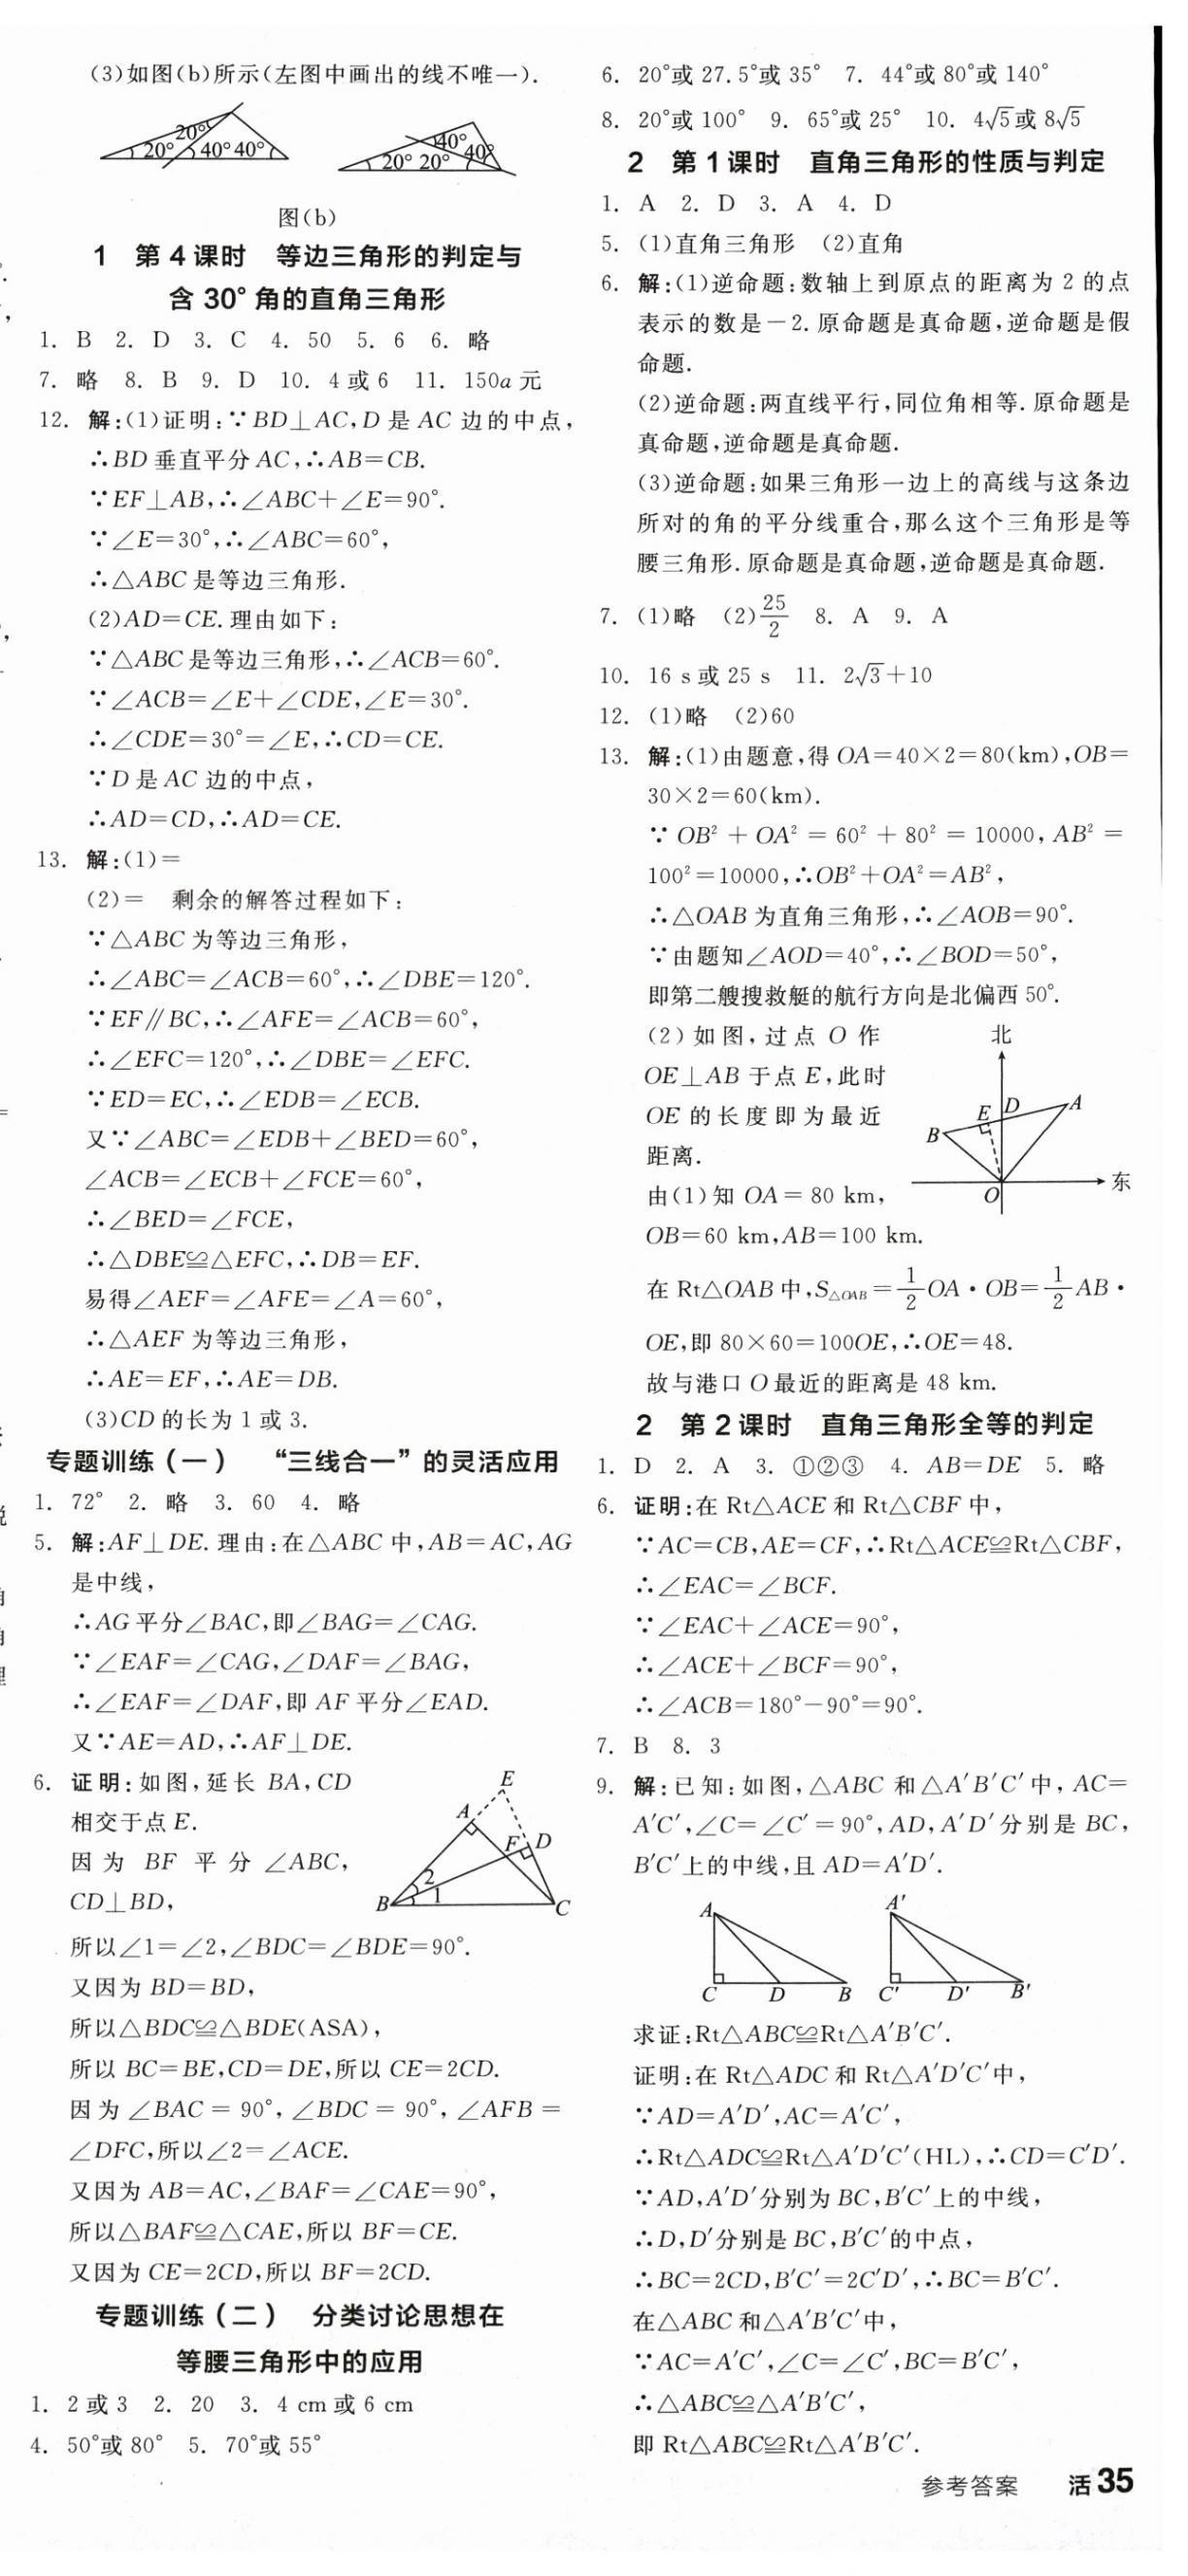 (3)如图(b)所示(左图中画出的线不唯一).
20° 20° 40° 40°
40° 20° 20° 40°
图(b)
1 第4课时 等边三角形的判定与
含30°角的直角三角形
1. B 2. D 3. C 4. 50 5. 6 6. 略
7. 略 8. B 9. D 10. 4或6 11. 150a元
12. 解:(1)证明:∵BD⊥AC,D是AC边的中点,
∴BD垂直平分AC,∴AB=CB.
∵EF⊥AB,∴∠ABC+∠E=90°.
∵∠E=30°,∴∠ABC=60°,
∴△ABC是等边三角形.
(2)AD=CE.理由如下:
∵△ABC是等边三角形,∴∠ACB=60°.
∵∠ACB=∠E+∠CDE,∠E=30°.
∴∠CDE=30°=∠E,∴CD=CE.
∵D是AC边的中点,
∴AD=CD,∴AD=CE.
13. 解:(1)=
(2)= 剩余的解答过程如下:
∵△ABC为等边三角形,
∴∠ABC=∠ACB=60°,∴∠DBE=120°.
∵EF∥BC,∴∠AFE=∠ACB=60°,
∴∠EFC=120°,∴∠DBE=∠EFC.
∵ED=EC,∴∠EDB=∠ECB.
又∵∠ABC=∠EDB+∠BED=60°,
∠ACB=∠ECB+∠FCE=60°,
∴∠BED=∠FCE,
∴△DBE≌△EFC,∴DB=EF.
易得∠AEF=∠AFE=∠A=60°,
∴△AEF为等边三角形,
∴AE=EF,∴AE=DB.
(3)CD的长为1或3.
专题训练(一) “三线合一”的灵活应用
1. 72° 2. 略 3. 60 4. 略
5. 解:AF⊥DE.理由:在△ABC中,AB=AC,AG
是中线,
∴AG平分∠BAC,即∠BAG=∠CAG.
∵∠EAF=∠CAG,∠DAF=∠BAG,
∴∠EAF=∠DAF,即AF平分∠EAD.
又∵AE=AD,∴AF⊥DE.
6. 证明:如图,延长BA,CD
相交于点E.
因为BF平分∠ABC,
CD⊥BD,
E A F D 2 1 B C
所以∠1=∠2,∠BDC=∠BDE=90°.
又因为BD=BD,
所以△BDC≌△BDE(ASA),
所以BC=BE,CD=DE,所以CE=2CD.
因为∠BAC=90°,∠BDC=90°,∠AFB=
∠DFC,所以∠2=∠ACE.
又因为AB=AC,∠BAF=∠CAE=90°,
所以△BAF≌△CAE,所以BF=CE.
又因为CE=2CD,所以BF=2CD.
专题训练(二) 分类讨论思想在
等腰三角形中的应用
1. 2或3 2. 20 3. 4 cm或6 cm
4. 50°或80° 5. 70°或55°
6. 20°或27.5°或35° 7. 44°或80°或140°
8. 20°或100° 9. 65°或25° 10. 4√5或8√5
2 第1课时 直角三角形的性质与判定
1. A 2. D 3. A 4. D
5. (1)直角三角形 (2)直角
6. 解:(1)逆命题:数轴上到原点的距离为2的点
表示的数是-2.原命题是真命题,逆命题是假
命题.
(2)逆命题:两直线平行,同位角相等.原命题是
真命题,逆命题是真命题.
(3)逆命题:如果三角形一边上的高线与这条边
所对的角的平分线重合,那么这个三角形是等
腰三角形.原命题是真命题,逆命题是真命题.
7. (1)略 (2)25/2 8. A 9. A
10. 16 s或25 s 11. 2√3+10
12. (1)略 (2)60
13. 解:(1)由题意,得OA=40×2=80(km),OB=
30×2=60(km).
∵OB²+OA²=60²+80²=10000,AB²=
100²=10000,∴OB²+OA²=AB²,
∴△OAB为直角三角形,∴∠AOB=90°.
∵由题知∠AOD=40°,∴∠BOD=50°,
即第二艘搜救艇的航行方向是北偏西50°.
(2)如图,过点O作
OE⊥AB于点E,此时
OE的长度即为最近
距离.
由(1)知OA=80 km,
北 E D A B O 东
OB=60 km,AB=100 km.
在Rt△OAB中,S△OAB=1/2OA·OB=1/2AB·
OE,即80×60=100OE,∴OE=48.
故与港口O最近的距离是48 km.
2 第2课时 直角三角形全等的判定
1. D 2. A 3. ①②③ 4. AB=DE 5. 略
6. 证明:在Rt△ACE和Rt△CBF中,
∵AC=CB,AE=CF,∴Rt△ACE≌Rt△CBF,
∴∠EAC=∠BCF.
∵∠EAC+∠ACE=90°,
∴∠ACE+∠BCF=90°,
∴∠ACB=180°-90°=90°.
7. B 8. 3
9. 解:已知:如图,△ABC和△A′B′C′中,AC=
A′C′,∠C=∠C′=90°,AD,A′D′分别是BC,
B′C′上的中线,且AD=A′D′.
A C D B A′ C′ D′ B′
求证:Rt△ABC≌Rt△A′B′C′.
证明:在Rt△ADC和Rt△A′D′C′中,
∵AD=A′D′,AC=A′C′,
∴Rt△ADC≌Rt△A′D′C′(HL),∴CD=C′D′.
∵AD,A′D′分别为BC,B′C′上的中线,
∴D,D′分别是BC,B′C′的中点,
∴BC=2CD,B′C′=2C′D′,∴BC=B′C′.
在△ABC和△A′B′C′中,
∵AC=A′C′,∠C=∠C′,BC=B′C′,
∴△ABC≌△A′B′C′,
即Rt△ABC≌Rt△A′B′C′.
参考答案 活35